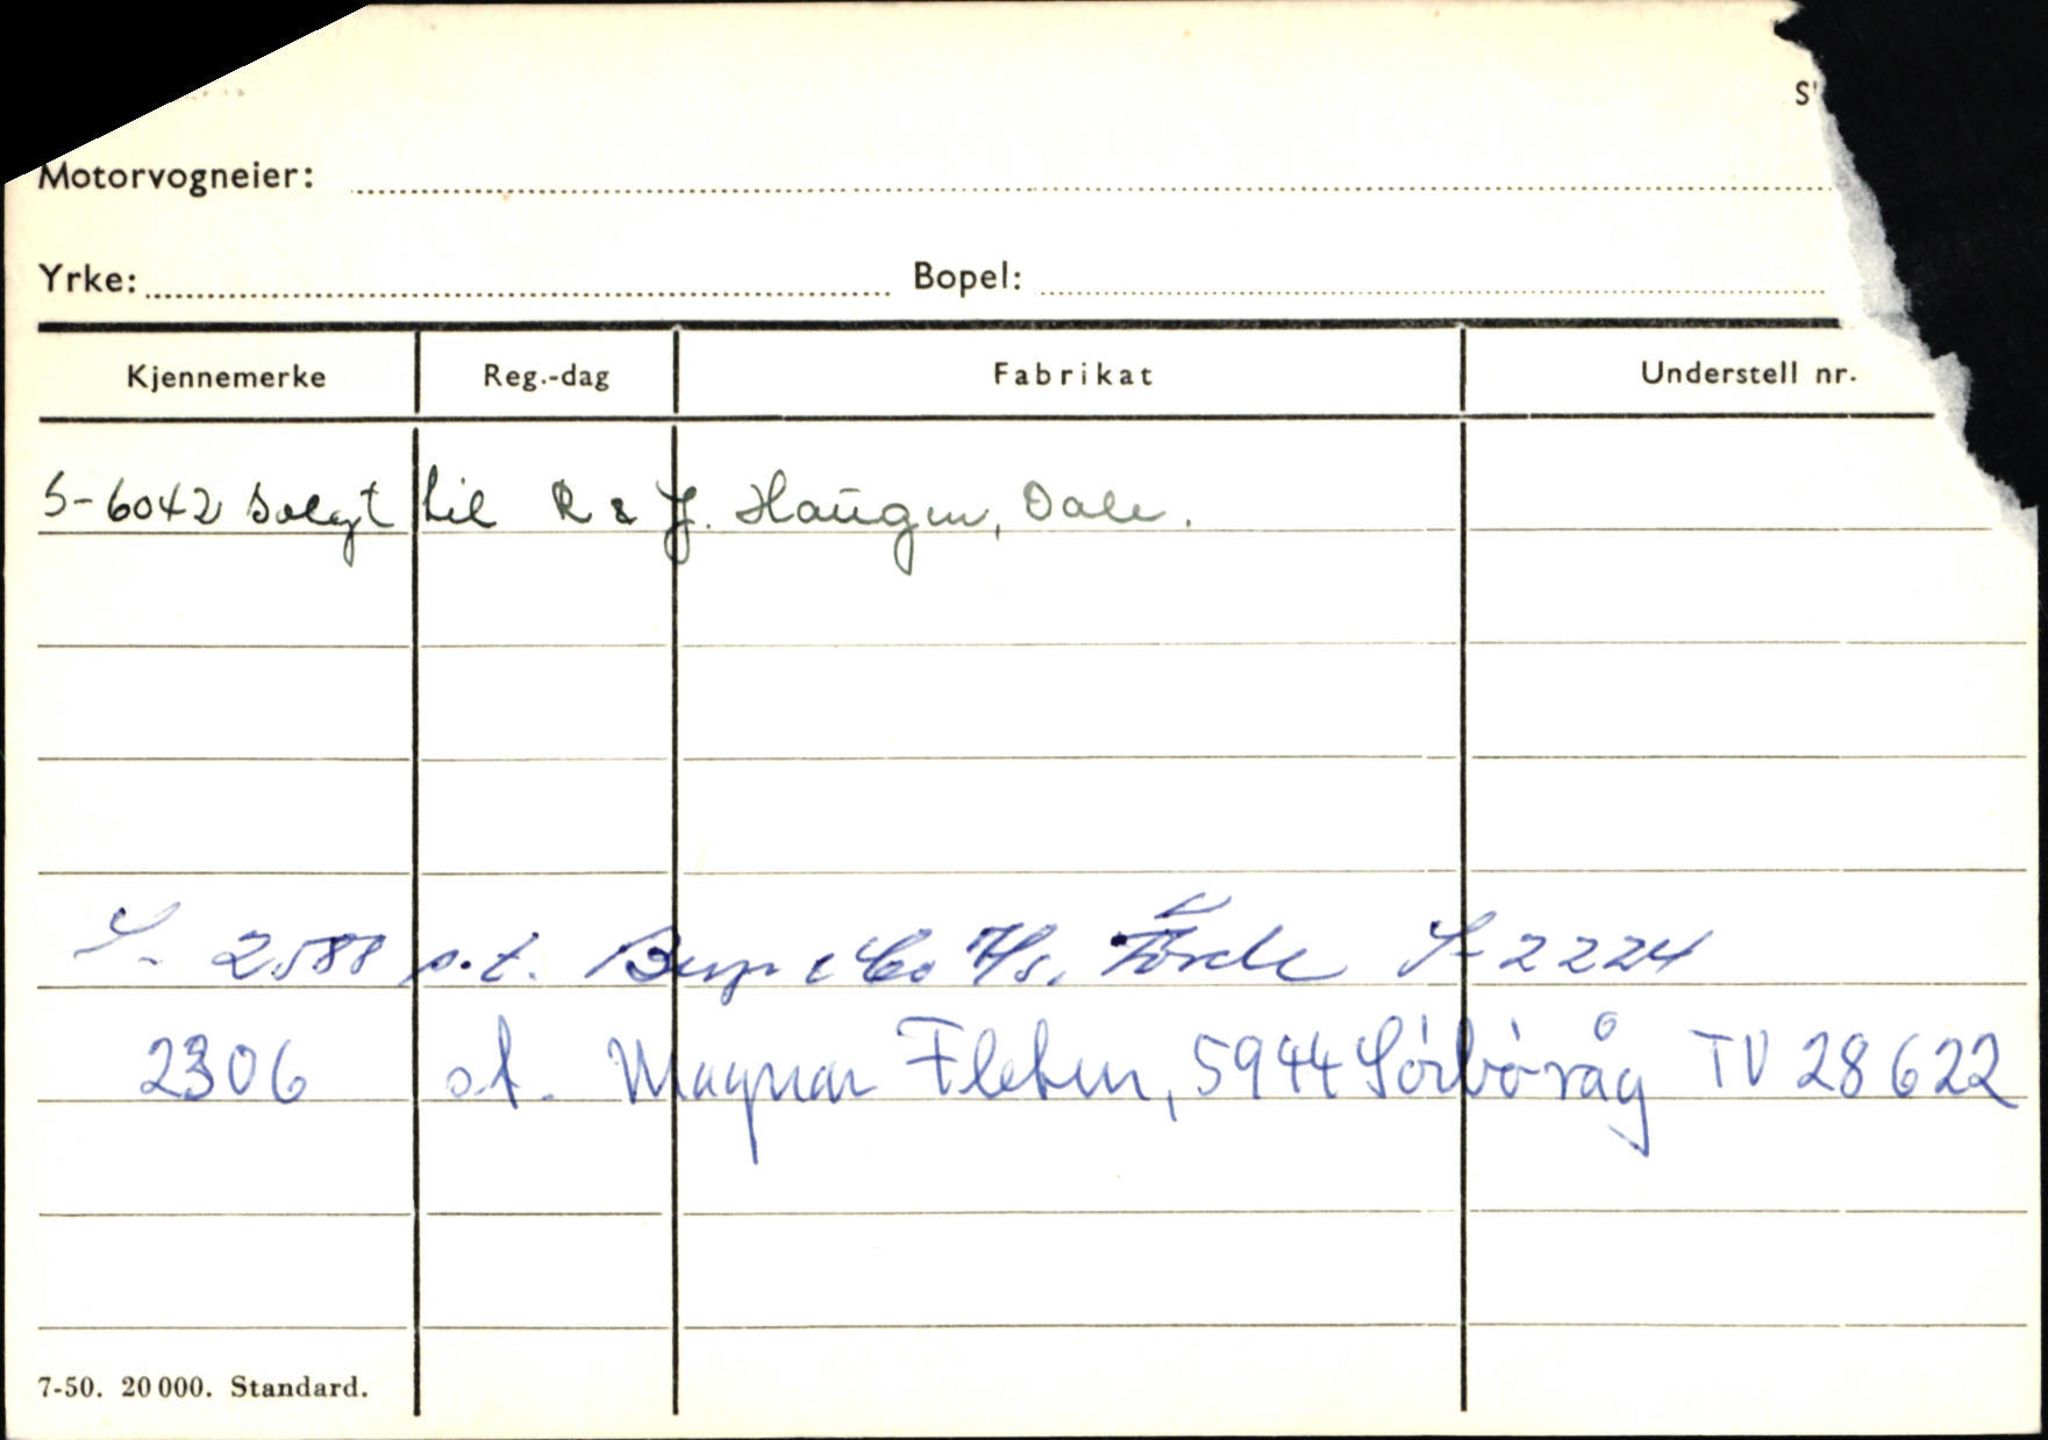 Motorvogneier:
Yrke: Bopel:
Kjennemerke Reg.-dag Fabrikat Understell nr.
S-6042 Solgt til R & J. Haugen, Dale.
S- 2588 s.t. & Co A/s, Førde S-2224
2306 s.t. Magnar Fleten, 5944 Sørbøvåg TV 28622
7-50. 20 000. Standard.